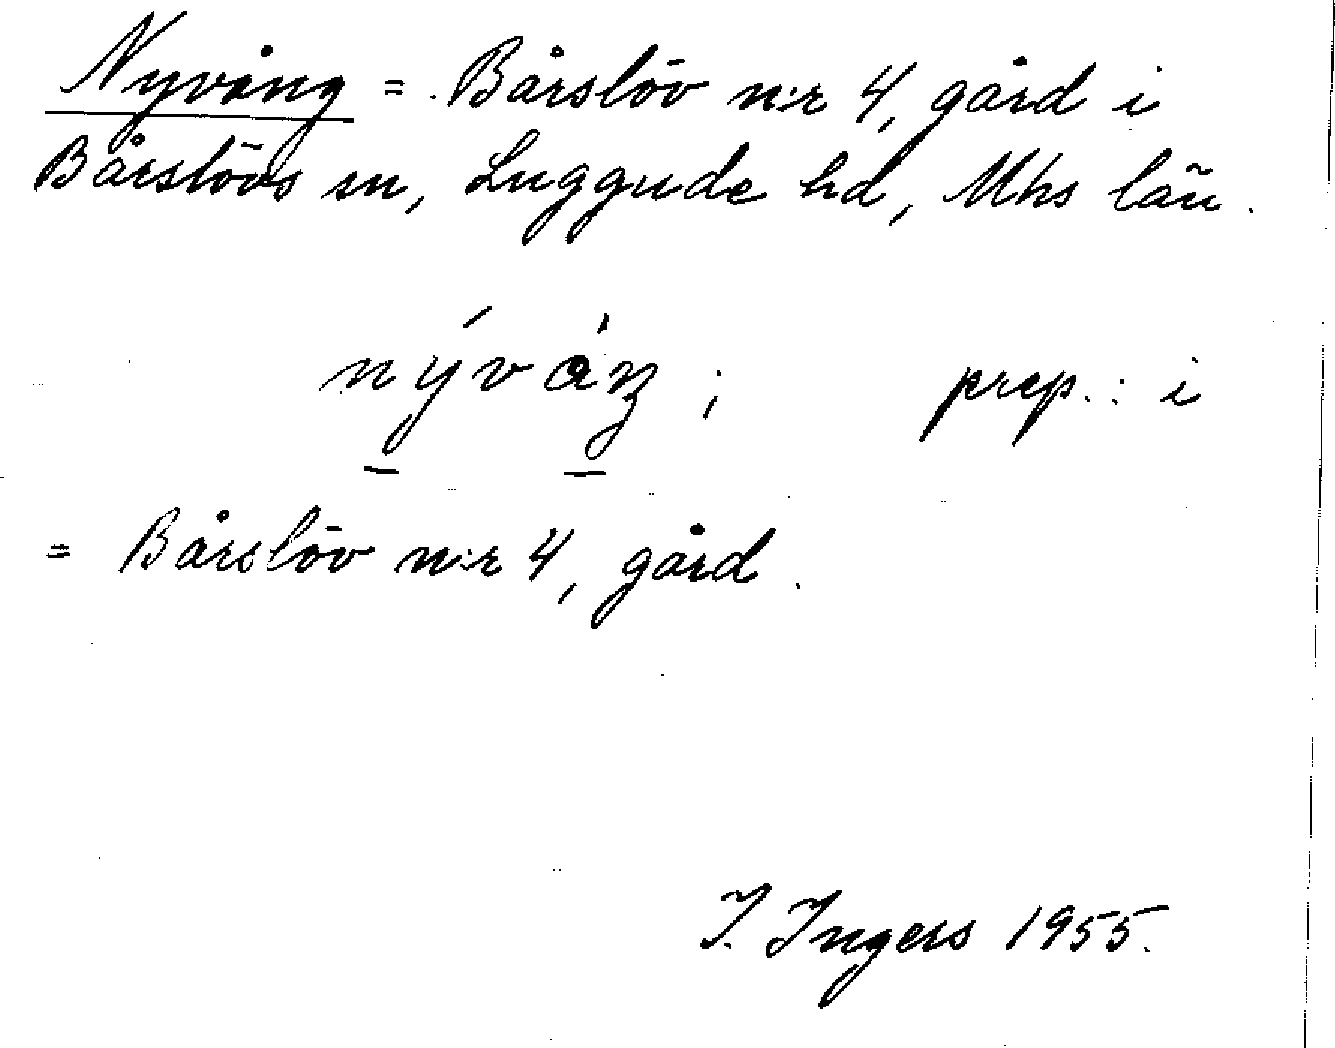 Nyvång = Bårslöv n:r 4, gård i
Bårslövs sn, Luggude hd, Mhs län.
nýváŋ ; prep.: i
= Bårslöv n:r 4, gård.
I. Ingers 1955.